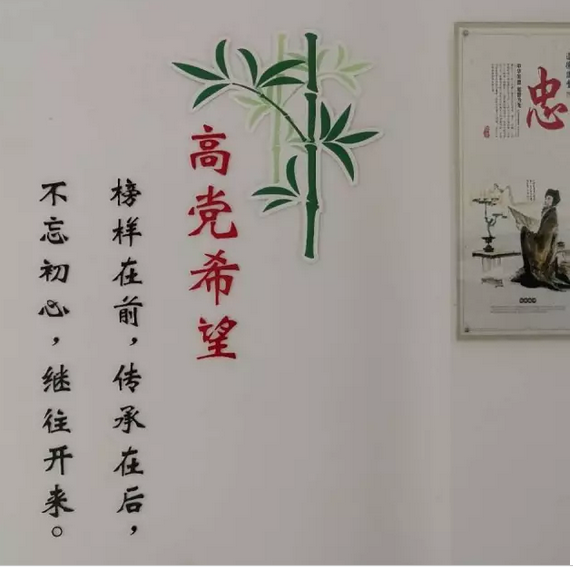 高党希望
榜样在前，传承在后，
不忘初心，继往开来。
忠